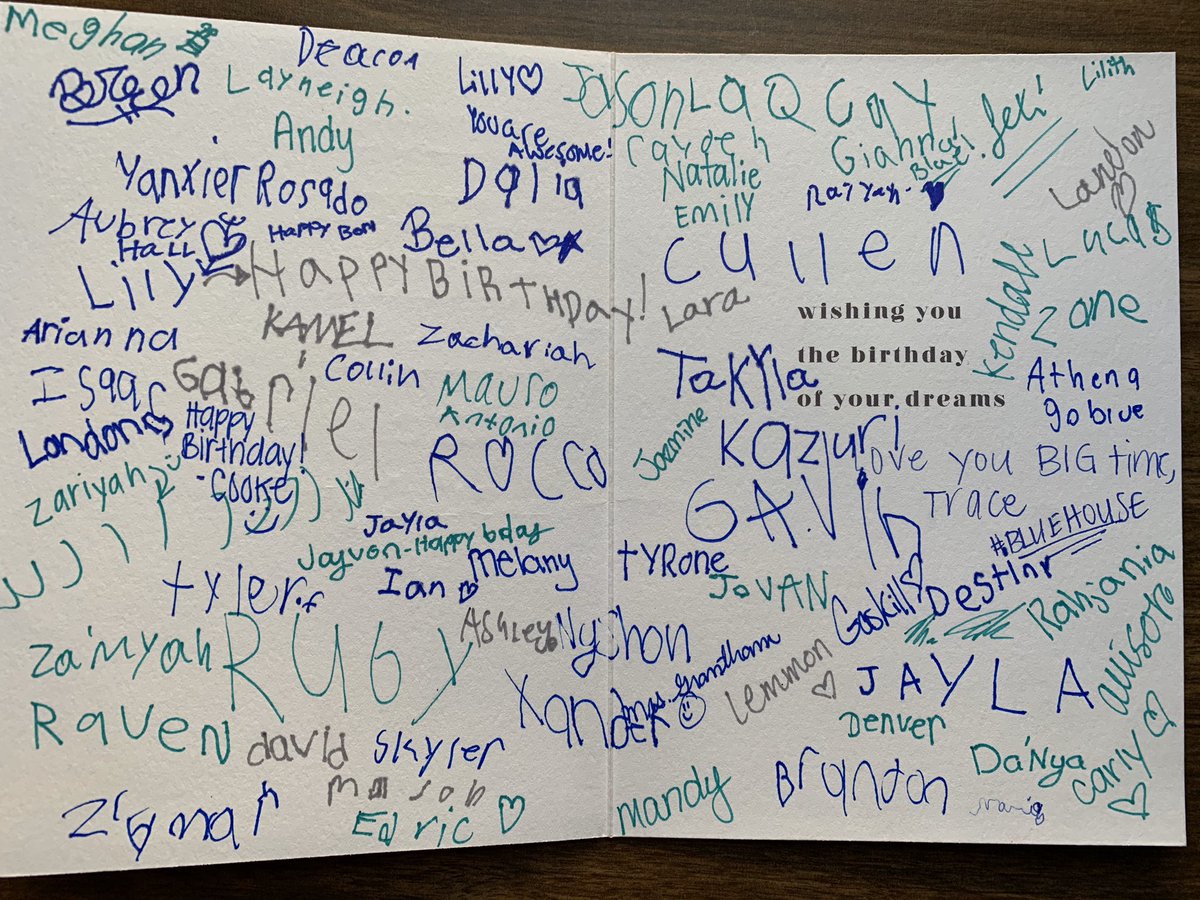 Meghan
Deacon
Layneigh.
Lilly
Andy
You are
Awesome!
Yanxier Rosado
Dalia
Aubrey
Hall
Happy Born
Bella
Lilly
HAPPY BiRTHDAY!
Arianna
KAMEL
Zachariah
Isaac
Gabriel
Collin
Mauro
Antonio
London
Happy
Birthday!
-Cookie
ROCCO
Zariyah
Jayla
Jayvon-Happy bday
Melany
tyler.f
Ian
Ashley
Za'niyah
RUBY
Raven
david
Skyler
Mason
Edric
Jason
LaQCay
Lilith
Cayden
Gianna!
Blue!
Leki!
Natalie
Landon
EMILY
Raiyah-
Cullen
Lucas
Lara
wishing you
Kendall
Zane
the birthday
Takyla
Athena
go blue
of your dreams
Jazmine
Kazuri
Love you BIG time,
Trace
GAVIN
#BLUEHOUSE
tyrone
JoVAN
Gaskill
Rahjania
allison
Nychon
Xander
Mrs. Grandham
Lemmon
JAYLA
Denver
Da'Nya
Carly
Mandy
Branton